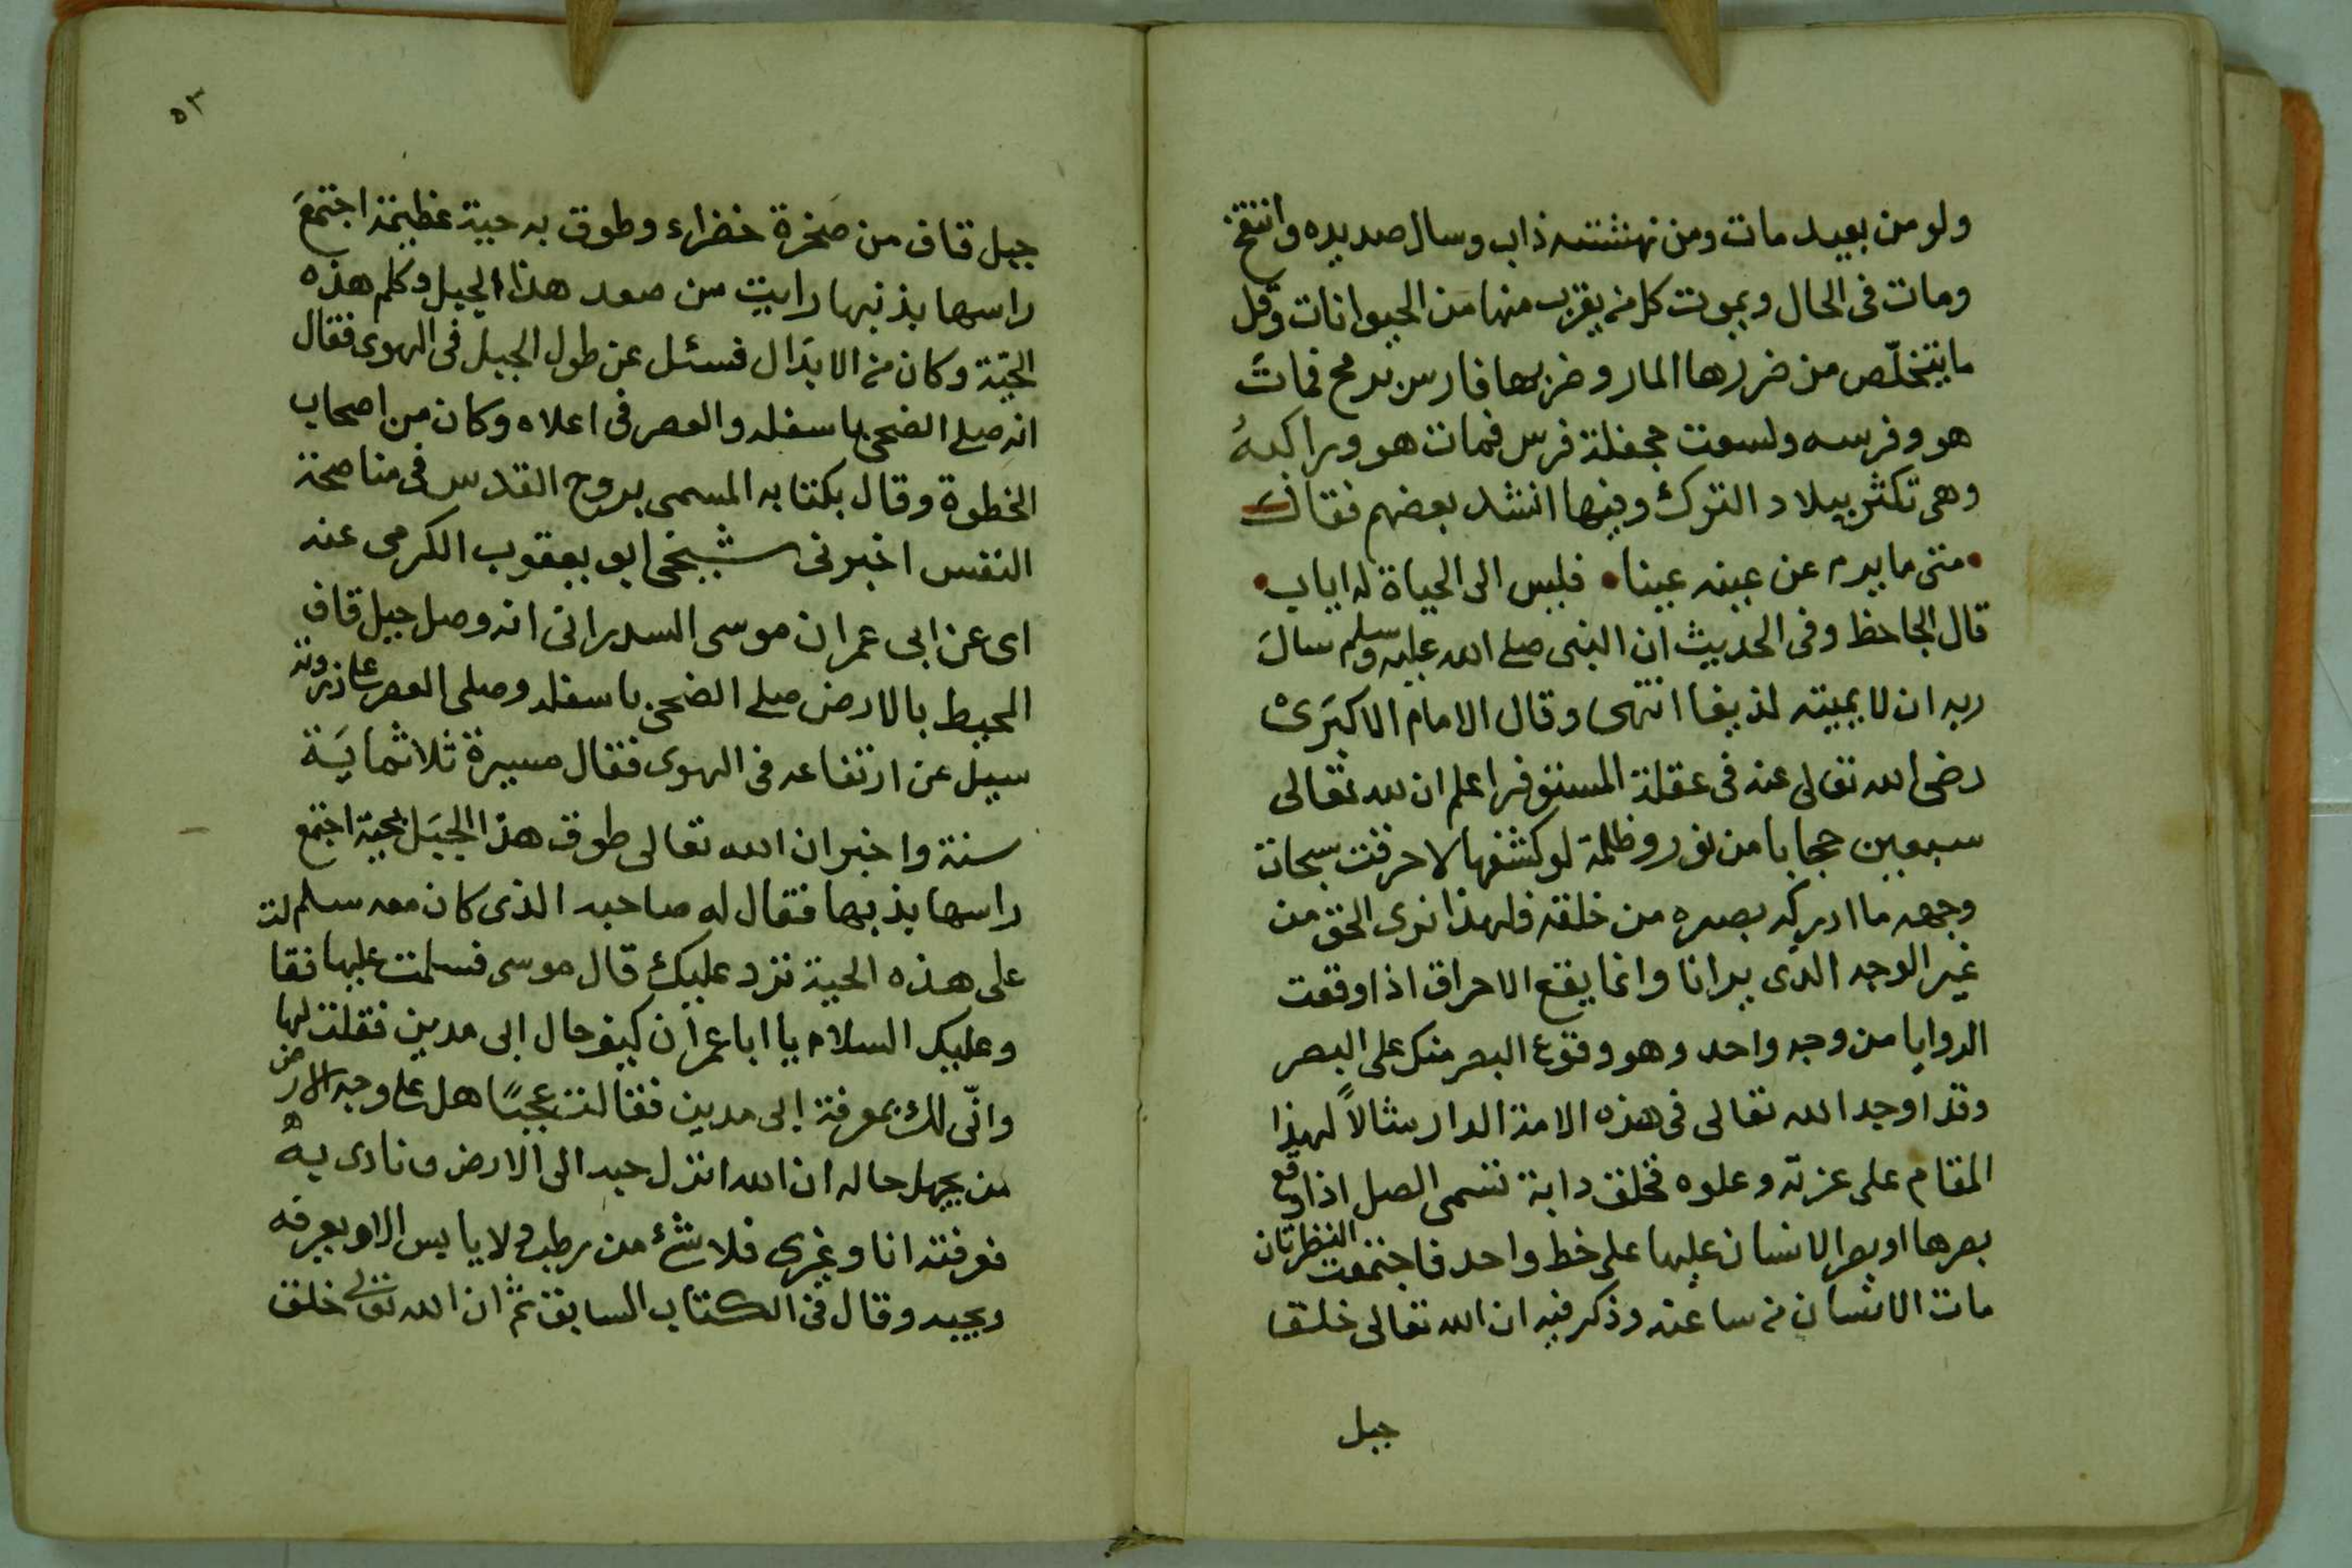 ولو من بعيد مات ومن نهشته ذاب وسال صديده وانتفخ
ومات فى الحال ويموت كل من يقرب منها من الحيوانات وقل
ما يتخلّص من ضررها المار وضربها فارس برمح فمات
هو وفرسه ولسعت جحفلة فرس فمات هو وراكبه
وهى تكثر ببلاد الترك وفيها انشد بعضهم فقال
متى ما يرم عن عينه عينا • فليس الى الحياة له اياب •
قال الجاحظ وفى الحديث ان النبى صلى الله عليه وسلم سال
ربه ان لا يميته لذيغا انتهى وقال الامام الاكبرى
رضى الله تعالى عنه فى عقلة المستوفز اعلم ان لله تعالى
سبعين حجابا من نور وظلمة لو كشفها لاحرقت سبحات
وجهه ما ادركه بصره من خلقه فلهذا نرى الحق من
غير الوجه الذى يرانا وانما يقع الاحراق اذا وقعت
الروايا من وجه واحد وهو وقوع البصر منك على البصر
وقد اوجد الله تعالى فى هذه الامة الدار مثالاً لهذا
المقام على عزته وعلوه فخلق دابة تسمى الصل اذا وقع
بصرها او بصر الانسان عليها على خط واحد فاجتمعت النظرتان
مات الانسان من ساعته وذكر فيه ان الله تعالى خلق
جبل
٥٣
جبل قاف من صخرة خضراء وطوق به حية عظيمة اجتمع
راسها بذنبها رايت من صعد هذا الجبل وكلم هذه
الحيّة وكان من الابدال فسئل عن طول الجبل فى الهوى فقال
انه صلى الضحى باسفله والعصر فى اعلاه وكان من اصحاب
الخطوة وقال بكتابه المسمى بروح القدس فى مناصحة
النفس اخبرنى شيخى ابو يعقوب الكرمى عنه
اى عن ابى عمران موسى السدرانى انه وصل جبل قاف
المحيط بالارض صلى الضحى باسفله وصلى العصر على ذروته
سيل عن ارتفاعه فى الهوى فقال مسيرة ثلاثماية
سنة واخبر ان الله تعالى طوق هذا الجبل بحية اجتمع
راسها بذنبها فقال له صاحبه الذى كان معه سلم لت
على هذه الحية ترد عليك قال موسى فسلمت عليها فقا
وعليك السلام يا ابا عمران كيف حال ابى مدين فقلت لها
وانّى لك بمعرفة ابى مدين فقالت عجبًا هل على وجه الارض
من يجهل حاله ان الله انزل حبه الى الارض ونادى به
فعرفته انا وغيرى فلا شئ من رطب ولا يابس الا ويعرفه
ويحبه وقال فى الكتاب السابق ثم ان الله تعالى خلق